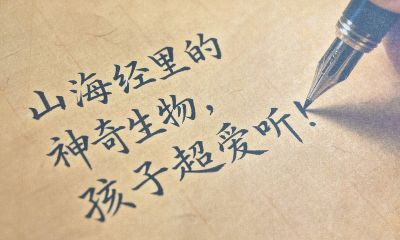 山海经里的
神奇生物，
孩子超爱听！